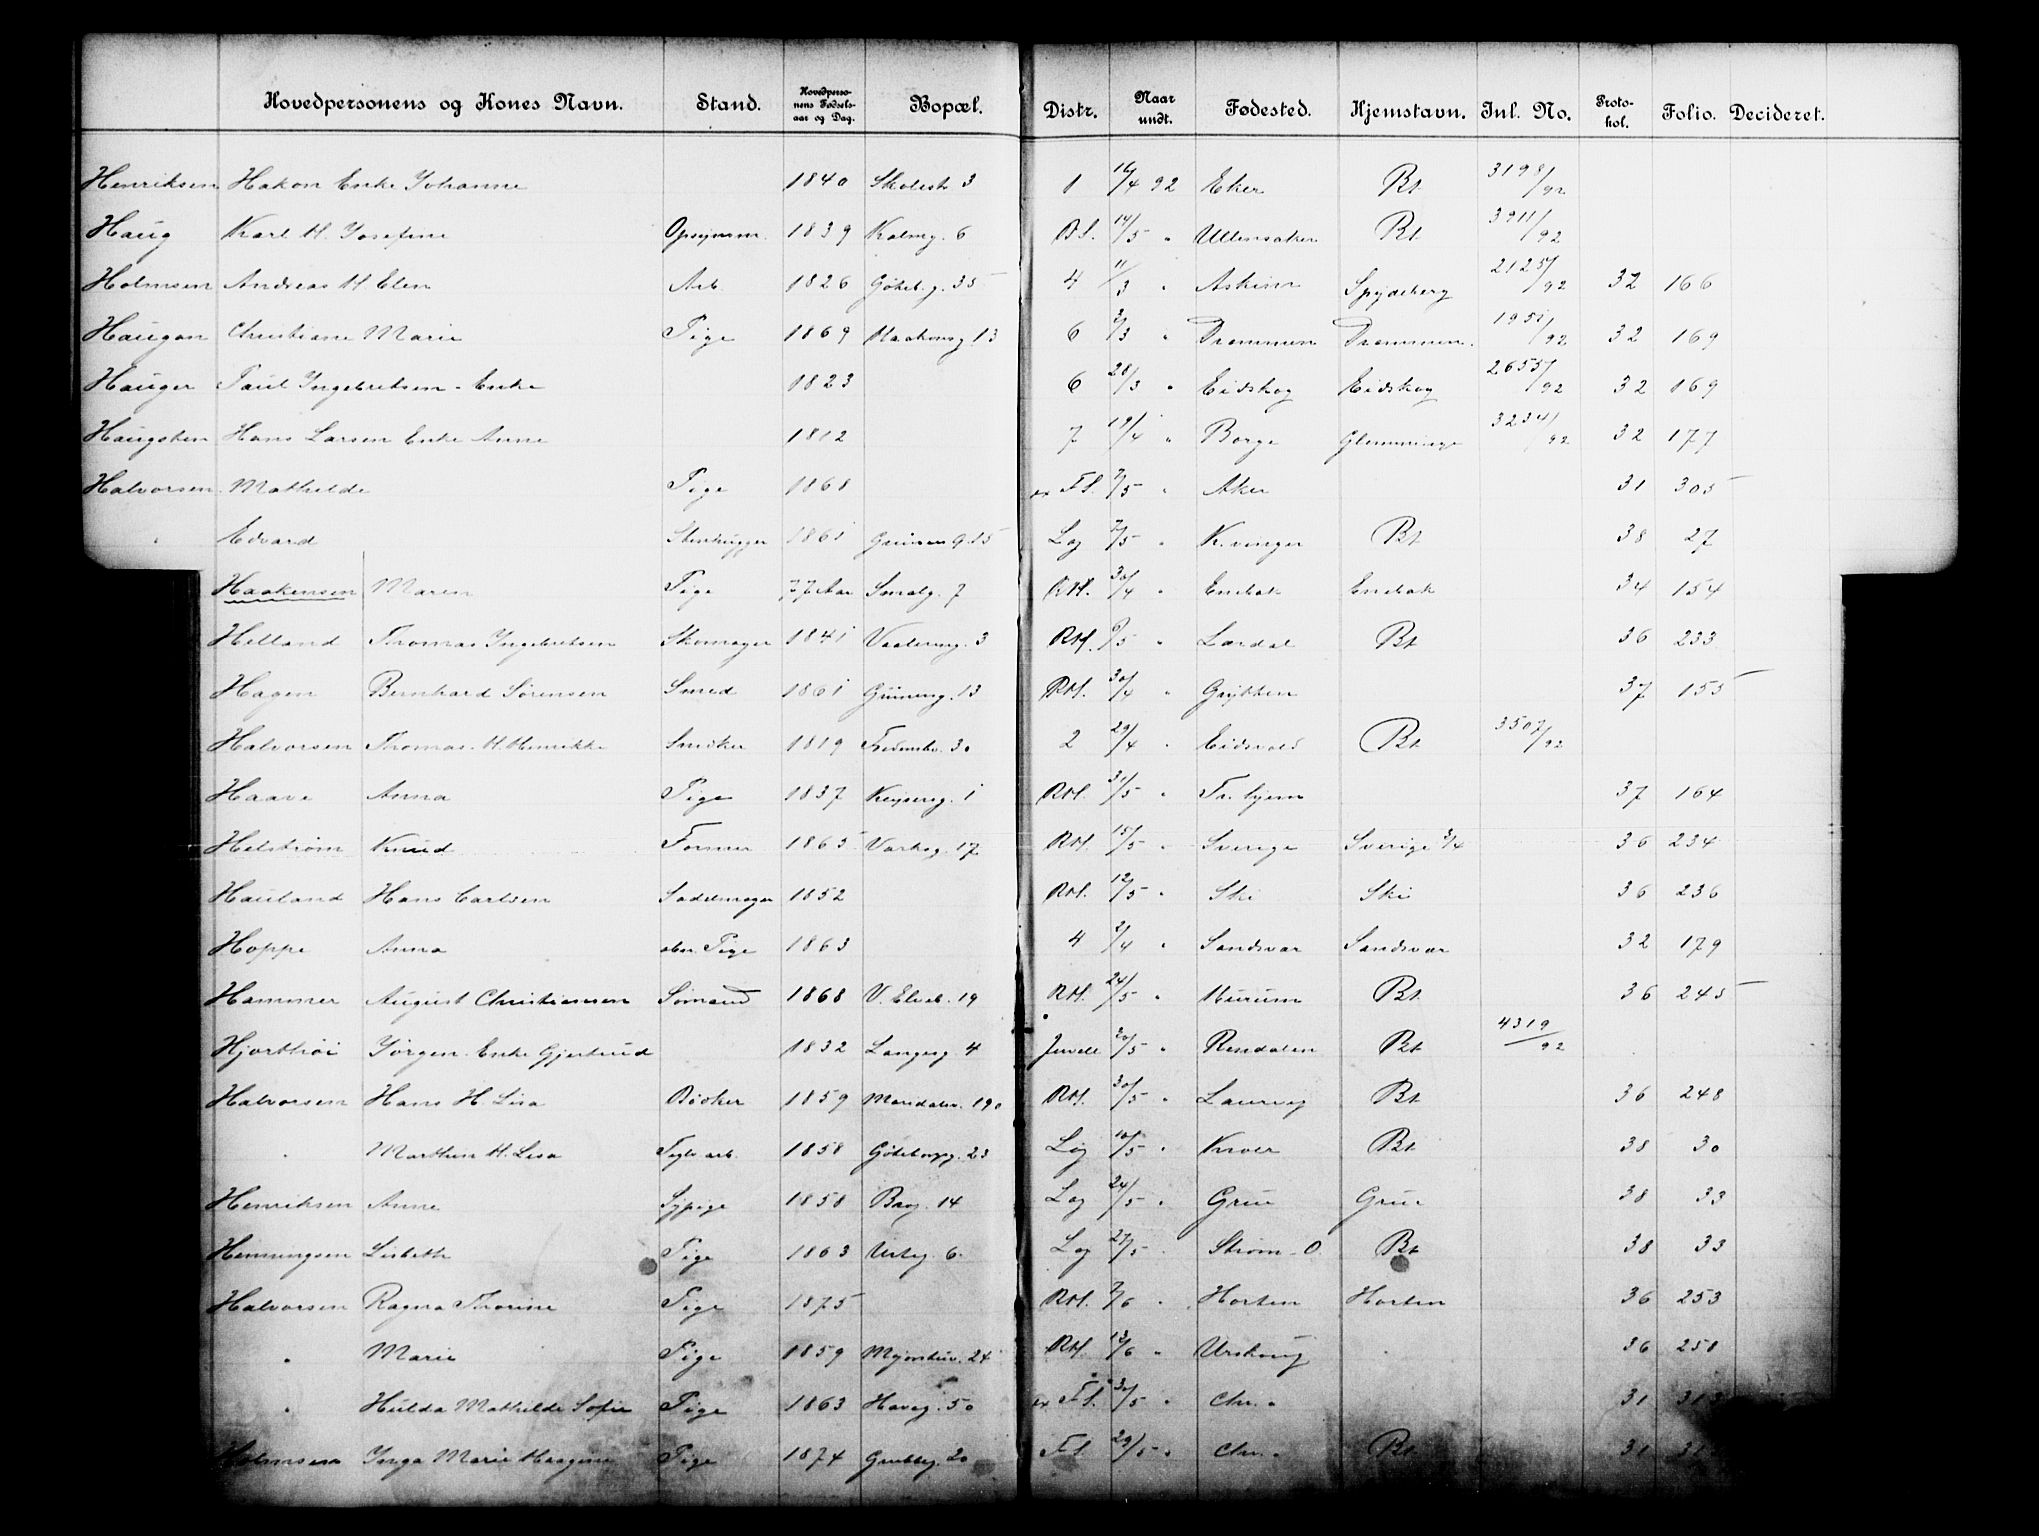 Hovedpersonens og Kones Navn. Stand. Hovedpersonens Fødselsaar og Dag. Bopæl. Distr. Naar undt. Fødested. Hjemstavn. Inl. No. Protokol. Folio. Decideret.
Henriksen Hakon Enke Johanne 1840 Skolest. 3 1 16/4 92 Eker Bt 3198/92
Haug Karl H. Josefine Opsynsm. 1839 Kolmg. 6 BS. 14/5 " Ullensaker Bt 3911/92
Holmsen Andreas H Elen Arb. 1826 Götebg. 35 4 11/3 " Askim Spydeberg 2125/92 32 166
Haugan Christiane Marie Pige 1869 Haakonsg. 13 6 2/3 " Drammen Drammen. 1951/92 32 169
Hauger Paul Ingebriktsen - Enke 1823 6 28/3 " Eidskog Eidskog 2655/92 32 169
Haugsten Hans Larsen Enke Anne 1812 7 19/4 " Borge Glemminge 3234/92 32 177
Halvorsen Mathilde Pige 1868 ex FS. 7/5 " Aker 31 305
" Edvard Stenhugger 1861 Grüners g. 15 Lg 7/5 " K.vinger Bt 38 27
Haakensen Maren Pige 77 Aar Smalg. 7 RH. 30/4 " Enebak Enebak 34 154
Helland Thomas Ingebretsen Skomager 1841 Vaalereng. 3 RH. 6/5 " Lærdal Bt 36 233
Hagen Bernhard Sørensen Smed 1861 Grünerg. 13 RH. 30/4 " Grytten 37 155
Halvorsen Thomas. H. Henrikke Snedker 1819 Fredensbr. 30 2 29/4 " Eidsvold Bt 3507/92
Haave Anna Pige 1837 Keyserg. 1 RH. 31/5 " Tr.hjem 37 164
Helstrøm Knud Former 1865 Varksg. 17 RH. 15/5 " Sverige Sverige 3/4 36 234
Hauland Hans Carlsen Sadelmager 1852 RH. 12/5 " Ski Ski 36 236
Hoppe Anna Pige 1863 4 2/4 " Sandsvær Sandsvær 32 179
Hammer August Christiansen Sømand 1868 V. Elveb. 19 RH. 24/5 " Hurum Bt 36 245
Hjorthöi Jørgen. Enke Gjertrud 1832 Langesg. 4 Juvele 20/5 " Rendalen Bt 4319/92
Halvorsen Hans H. Lisa Bödker 1859 Maridalsv. 190 RH. 30/5 " Laurvig Bt 36 248
" Marthin H. Lisa Teglv. arb. 1858 Göteborgg. 23 Lg 10/5 " Bt 38 30
Henriksen Anne Sypige 1858 Brog. 14 Lg 24/5 " Grue Grue 38 33
Henningsen Lisbeth Pige 1863 Urteg. 6. Lg 27/5 " Strøm-O. Bt 38 33
Halvorsen Ragna Thorine Pige 1875 RH. 7/6 " Horten Horten 36 253
" Marie Pige 1859 RH. 13/6 " Urskoug 36 258
" Hulda Mathilde Sofie Pige 1863 Haveg. 50 ex FS. 30/5 " Chr.a 31 313
Holmsen Inga Marie Pige 1874 Grubbeg. 20 FS. 29/5 " Chr.a Bt 31